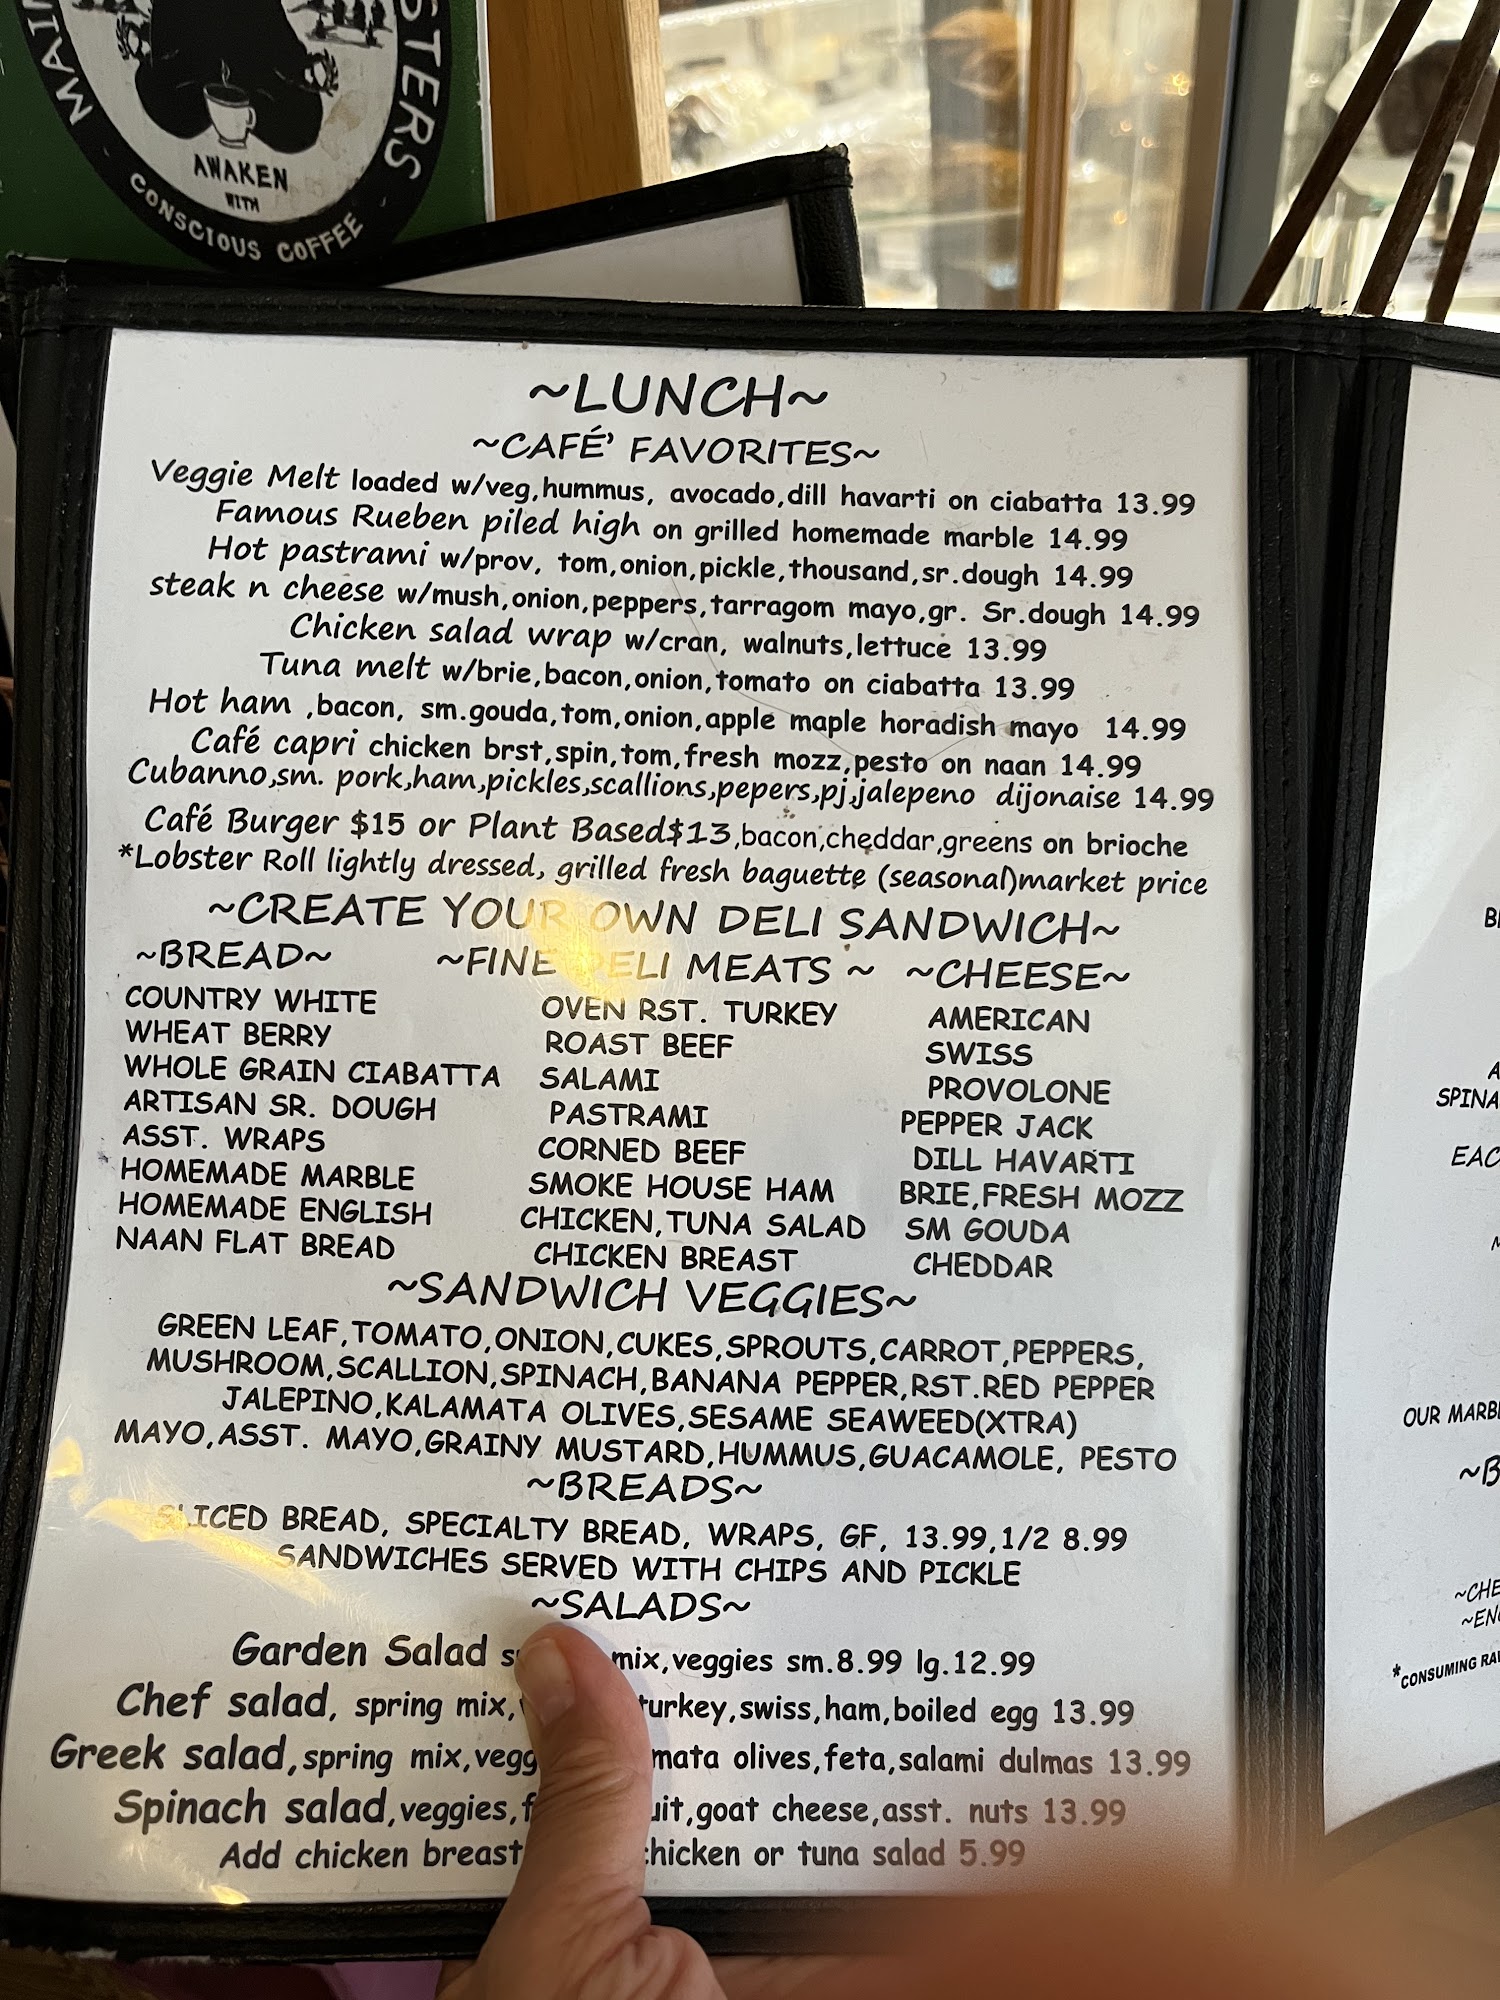 MAIN
STERS
AWAKEN
WITH
CONSCIOUS COFFEE
~LUNCH~
~CAFÉ' FAVORITES~
Veggie Melt loaded w/veg,hummus, avocado,dill havarti on ciabatta 13.99
Famous Rueben piled high on grilled homemade marble 14.99
Hot pastrami w/prov, tom,onion,pickle,thousand,sr.dough 14.99
steak n cheese w/mush,onion,peppers,tarragom mayo,gr. Sr.dough 14.99
Chicken salad wrap w/cran, walnuts,lettuce 13.99
Tuna melt w/brie,bacon,onion,tomato on ciabatta 13.99
Hot ham ,bacon, sm.gouda,tom,onion,apple maple horadish mayo 14.99
Café capri chicken brst,spin,tom,fresh mozz,pesto on naan 14.99
Cubanno,sm. pork,ham,pickles,scallions,pepers,pj,jalepeno dijonaise 14.99
Café Burger $15 or Plant Based$13,bacon,cheddar,greens on brioche
*Lobster Roll lightly dressed, grilled fresh baguette (seasonal)market price
~CREATE YOUR OWN DELI SANDWICH~
~BREAD~ ~FINE DELI MEATS ~ ~CHEESE~
COUNTRY WHITE OVEN RST. TURKEY AMERICAN
WHEAT BERRY ROAST BEEF SWISS
WHOLE GRAIN CIABATTA SALAMI PROVOLONE
ARTISAN SR. DOUGH PASTRAMI PEPPER JACK
ASST. WRAPS CORNED BEEF DILL HAVARTI
HOMEMADE MARBLE SMOKE HOUSE HAM BRIE,FRESH MOZZ
HOMEMADE ENGLISH CHICKEN,TUNA SALAD SM GOUDA
NAAN FLAT BREAD CHICKEN BREAST CHEDDAR
~SANDWICH VEGGIES~
GREEN LEAF,TOMATO,ONION,CUKES,SPROUTS,CARROT,PEPPERS,
MUSHROOM,SCALLION,SPINACH,BANANA PEPPER,RST.RED PEPPER
JALEPINO,KALAMATA OLIVES,SESAME SEAWEED(XTRA)
MAYO,ASST. MAYO,GRAINY MUSTARD,HUMMUS,GUACAMOLE, PESTO
~BREADS~
SLICED BREAD, SPECIALTY BREAD, WRAPS, GF, 13.99,1/2 8.99
SANDWICHES SERVED WITH CHIPS AND PICKLE
~SALADS~
Garden Salad mix,veggies sm.8.99 lg.12.99
Chef salad, spring mix, turkey,swiss,ham,boiled egg 13.99
Greek salad,spring mix,vegg mata olives,feta,salami dulmas 13.99
Spinach salad,veggies,f uit,goat cheese,asst. nuts 13.99
Add chicken breast chicken or tuna salad 5.99
SPINA
EAC
OUR MARB
~B
~CHE
~EN
*CONSUMING RA